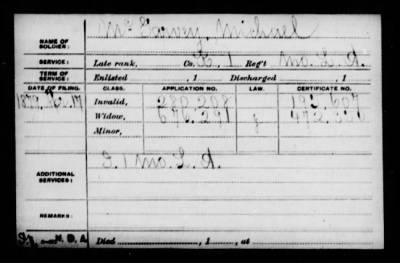 NAME OF SOLDIER: McGarvey, Michael
SERVICE: Late rank, Co. K, 1 Reg't Mo. L. A.
TERM OF SERVICE: Enlisted , 1 Discharged , 1
DATE OF FILING. CLASS. APPLICATION NO. LAW. CERTIFICATE NO.
1879, 17 Invalid, 280,208
Widow, 676,291
Minor,
ADDITIONAL SERVICES: I. 1 Mo. L. A.
REMARKS:
Died , 1 , at